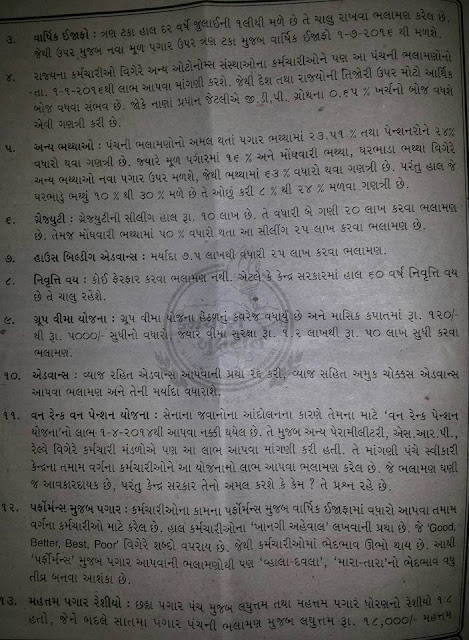 ૩. વાર્ષિક ઈજાફો : ત્રણ ટકા હાલ દર વર્ષે જુલાઈની ૧લીથી મળે છે તે ચાલુ રાખવા ભલામણ કરેલ છે.
જેથી ઉપર મુજબ નવા મૂળ પગાર ઉપર ત્રણ ટકા મુજબ વાર્ષિક ઈજાફો ૧-૭-૨૦૧૬ થી મળશે.
૪. રાજ્યના કર્મચારીઓ વિગેરે અન્ય ઓટોનોમ્સ સંસ્થાઓના કર્મચારીઓને પણ આ પંચની ભલામણોનો
તા. ૧-૧-૨૦૧૬થી લાભ આપવા માંગણી કરશે. જેથી દેશ તથા રાજ્યોની તિજોરી ઉપર મોટો આર્થિક
બોજ વધવા સંભવ છે. જોકે નાણાં પ્રધાન જેટલીએ જી.ડી.પી. ગ્રોથના ૦.૬૫ % ખર્ચનો બોજ વધશે
એવી ગણત્રી કરી છે.
૫. અન્ય ભથ્થાઓ : પંચની ભલામણોનો અમલ થતાં પગાર ભથ્થામાં ૨૩.૫૧ % તથા પેન્શનરોને ૨૪%
વધારો થવા ગણત્રી છે. જ્યારે મૂળ પગારમાં ૧૬ % અને મોંઘવારી ભથ્થા, ઘરભાડા ભથ્થા વિગેરે
અન્ય ભથ્થાઓ નવા પગાર ઉપર મળશે, જેથી ભથ્થામાં ૬૩ % વધારો થવા ગણત્રી છે. પરંતુ હાલ જે
ઘરભાડું ભથ્થું ૧૦ % થી ૩૦ % મળે છે તે ઓછું કરી ૮ % થી ૨૪ % મળવા ગણત્રી છે.
૬. ગ્રેજ્યુટી : ગ્રેજ્યુટીની સીલીંગ હાલ રૂા. ૧૦ લાખ છે. તે વધારી બે ગણી ૨૦ લાખ કરવા ભલામણ
છે. તેમજ મોંઘવારી ભથ્થામાં ૫૦ % વધારો થતા આ સીલીંગ ૨૫ લાખ કરવા ભલામણ કરેલ છે.
૭. હાઉસ બિલ્ડીંગ એડવાન્સ : મર્યાદા ૭.૫ લાખથી વધારી ૨૫ લાખ કરવા ભલામણ.
૮. નિવૃત્તિ વય : કોઈ ફેરફાર કરવા ભલામણ નથી. એટલે કે કેન્દ્ર સરકારમાં હાલ ૬૦ વર્ષ નિવૃત્તિ વય
છે તે ચાલુ રહેશે.
૯. ગ્રૂપ વીમા યોજના : ગ્રૂપ વીમા યોજના હેઠળનું કવરેજ વધાર્યું છે અને માસિક કપાતમાં રૂા. ૧૨૦/-
થી રૂા. ૫૦૦૦/- સુધીનો વધારો, જ્યારે વીમા સુરક્ષા રૂા. ૧.૨ લાખથી રૂા. ૫૦ લાખ સુધી કરવા
ભલામણ.
૧૦. એડવાન્સ : વ્યાજ રહિત એડવાન્સ આપવાની પ્રથા રદ કરી, વ્યાજ સહિત અમુક ચોક્કસ એડવાન્સ
આપવા ભલામણ અને તેની મર્યાદા વધારાશે.
૧૧. વન રેન્ક વન પેન્શન યોજના : સેનાના જવાનોના આંદોલનના કારણે તેમના માટે ‘વન રેન્ક પેન્શન
યોજના’નો લાભ ૧-૪-૨૦૧૪થી આપવા નક્કી થયેલ છે. તે મુજબ અન્ય પેરામીલીટરી, એસ.આર.પી.,
રેલ્વે વિગેરે કર્મચારી મંડળોએ પણ આ લાભ આપવા માંગણી કરી હતી. તે માંગણી પંચે સ્વીકારી
કેન્દ્રના તમામ વર્ગના કર્મચારીઓને આ યોજનાનો લાભ આપવા ભલામણ કરેલ છે. જે ભલામણ ઘણી
જ આવકારદાયક છે, પરંતુ કેન્દ્ર સરકાર તેનો અમલ કરશે કે કેમ ? તે પ્રશ્ન રહે છે.
૧૨. પર્ફોર્મન્સ મુજબ પગાર : કર્મચારીઓના કામના પર્ફોર્મન્સ મુજબ વાર્ષિક ઈજાફામાં વધારો આપવા તમામ
વર્ગના કર્મચારીઓ માટે કરેલ છે. હાલ કર્મચારીઓના ‘ખાનગી અહેવાલ’ લખવાની પ્રથા છે. જે ‘Good,
Better, Best, Poor’ વિગેરે શબ્દો વપરાય છે. જેથી કર્મચારીઓમાં ભેદભાવ ઊભો થાય છે. આથી
‘પર્ફોર્મન્સ’ મુજબ પગાર આપવાની ભલામણોથી પણ ‘વ્હાલા-દવલા’, ‘મારા-તારા’નો ભેદભાવ વધુ
તીવ્ર બનવા આશંકા છે.
૧૩. મહત્તમ પગાર રેશીયો : છઠ્ઠા પગાર પંચ મુજબ લઘુત્તમ તથા મહત્તમ પગાર ધોરણનો રેશીયો ૧:૮
હતો, જેને બદલે સાતમા પગાર પંચની ભલામણ મુજબ લઘુત્તમ રૂા. ૧૮,૦૦૦/- મહત્તમ